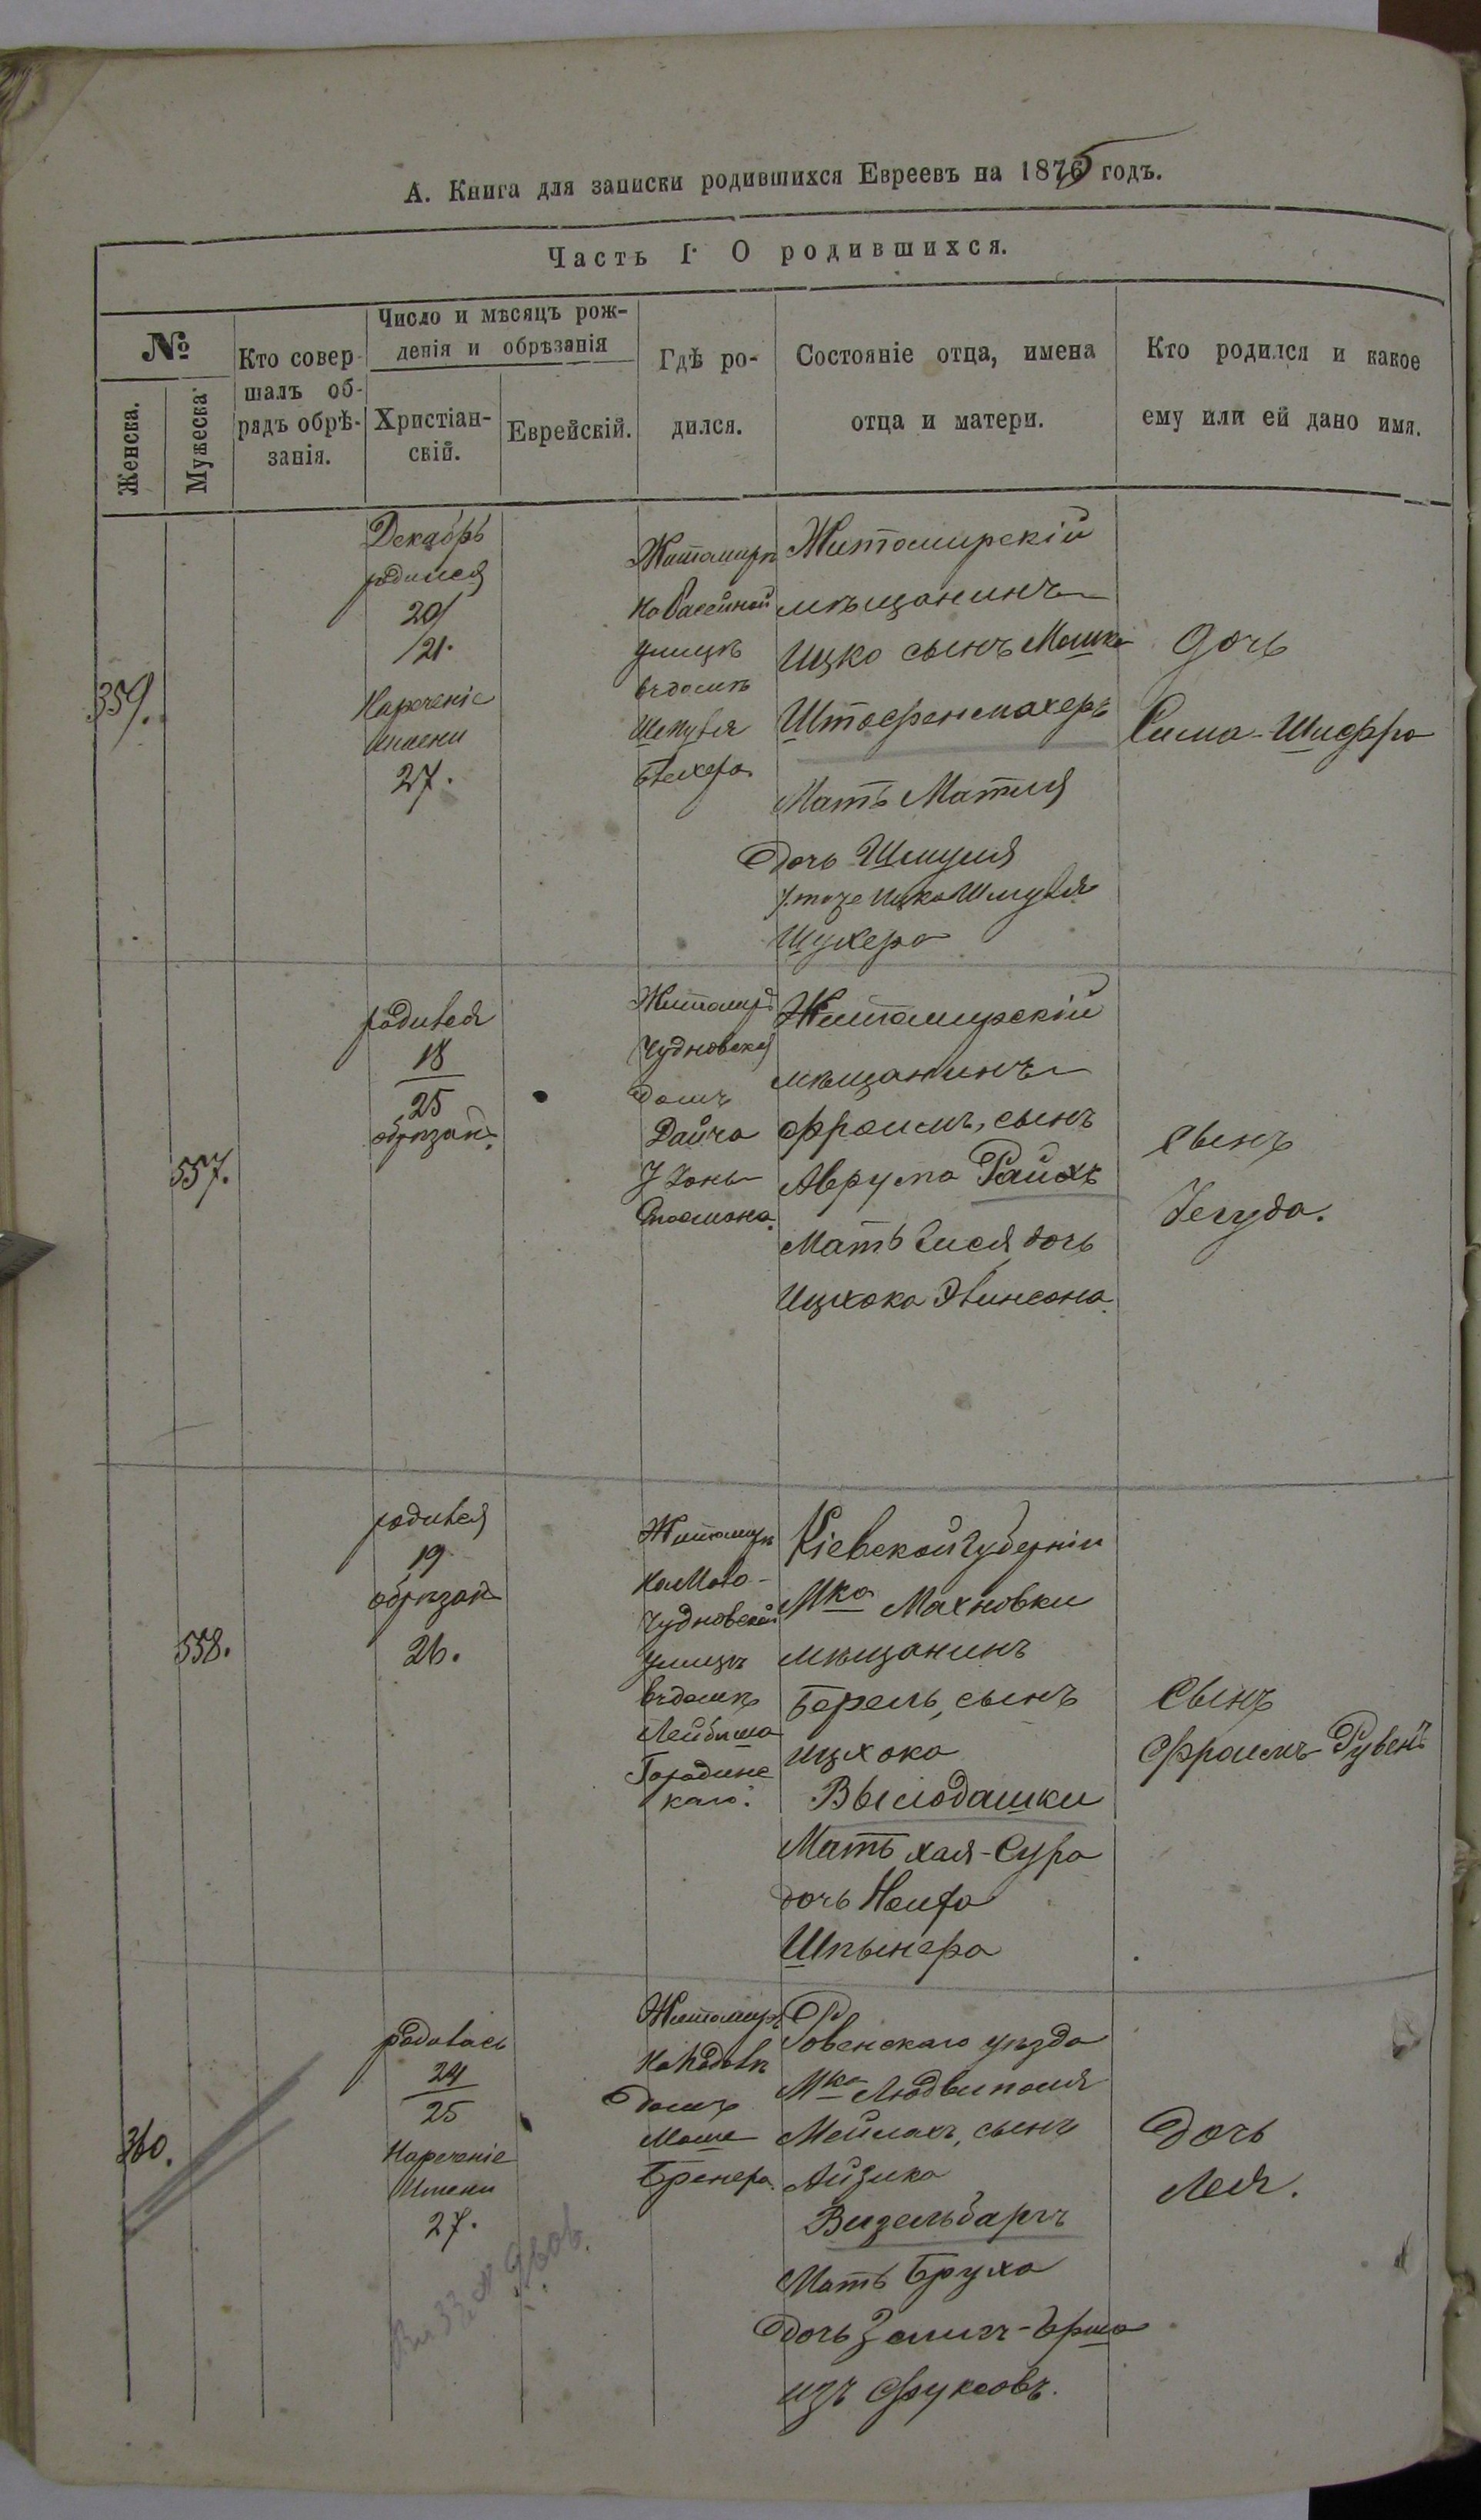 А. Книга для записки родившихся Евреевъ на 1875 годъ.
Часть I. О родившихся.
№
Женска.
Мужеска
Кто совер-
шалъ об-
рядъ обрѣ-
занія.
Число и мѣсяцъ рож-
денія и обрѣзанія
Христіан-
скій.
Еврейскій.
Гдѣ ро-
дился.
Состояніе отца, имена
отца и матери.
Кто родился и какое
ему или ей дано имя.
359.
Декабрь
родился
20/
/21.
Нареченіе
имени
27.
Житомиръ
улицѣ
въ домѣ
Житомирскій
мѣщанинъ
Ицко сынъ Мошка
Мать Матля
дочь Шмуля
Ицко Шмуля
Шухера
дочь
Сима-Шифра
557.
родився
18
25
обрѣзан.
Житомиръ
Чудновская
домъ
Дайча
Житомирскій
мѣщанинъ
Фроимъ, сынъ
Аврума Райхъ
Мать Сися дочь
Ицхока Эвинсона
сынъ
Іегуда.
558.
родився
19
обрѣзан
26.
Житомиръ
Чудновской
улицѣ
въ домѣ
Лейбыша
Городинс
каго.
Кіевской Губерніи
Мка Махновки
мѣщанинъ
Берель, сынъ
ицхока
Выслодашки
Мать хая-Сура
дочь
Шпынера
сынъ
Фроимъ-Рувенъ
360.
родилась
24
25
Нареченіе
Имени
27.
Житомиръ
домъ
Моше
Бренера.
Ровенскаго уѣзда
Мка Людвиполя
Мейлахъ, сынъ
Айзика
Визельбаргъ
Мать Бруха
дочь Зелигъ-Герша
изъ Фуксовъ.
дочь
Лея.